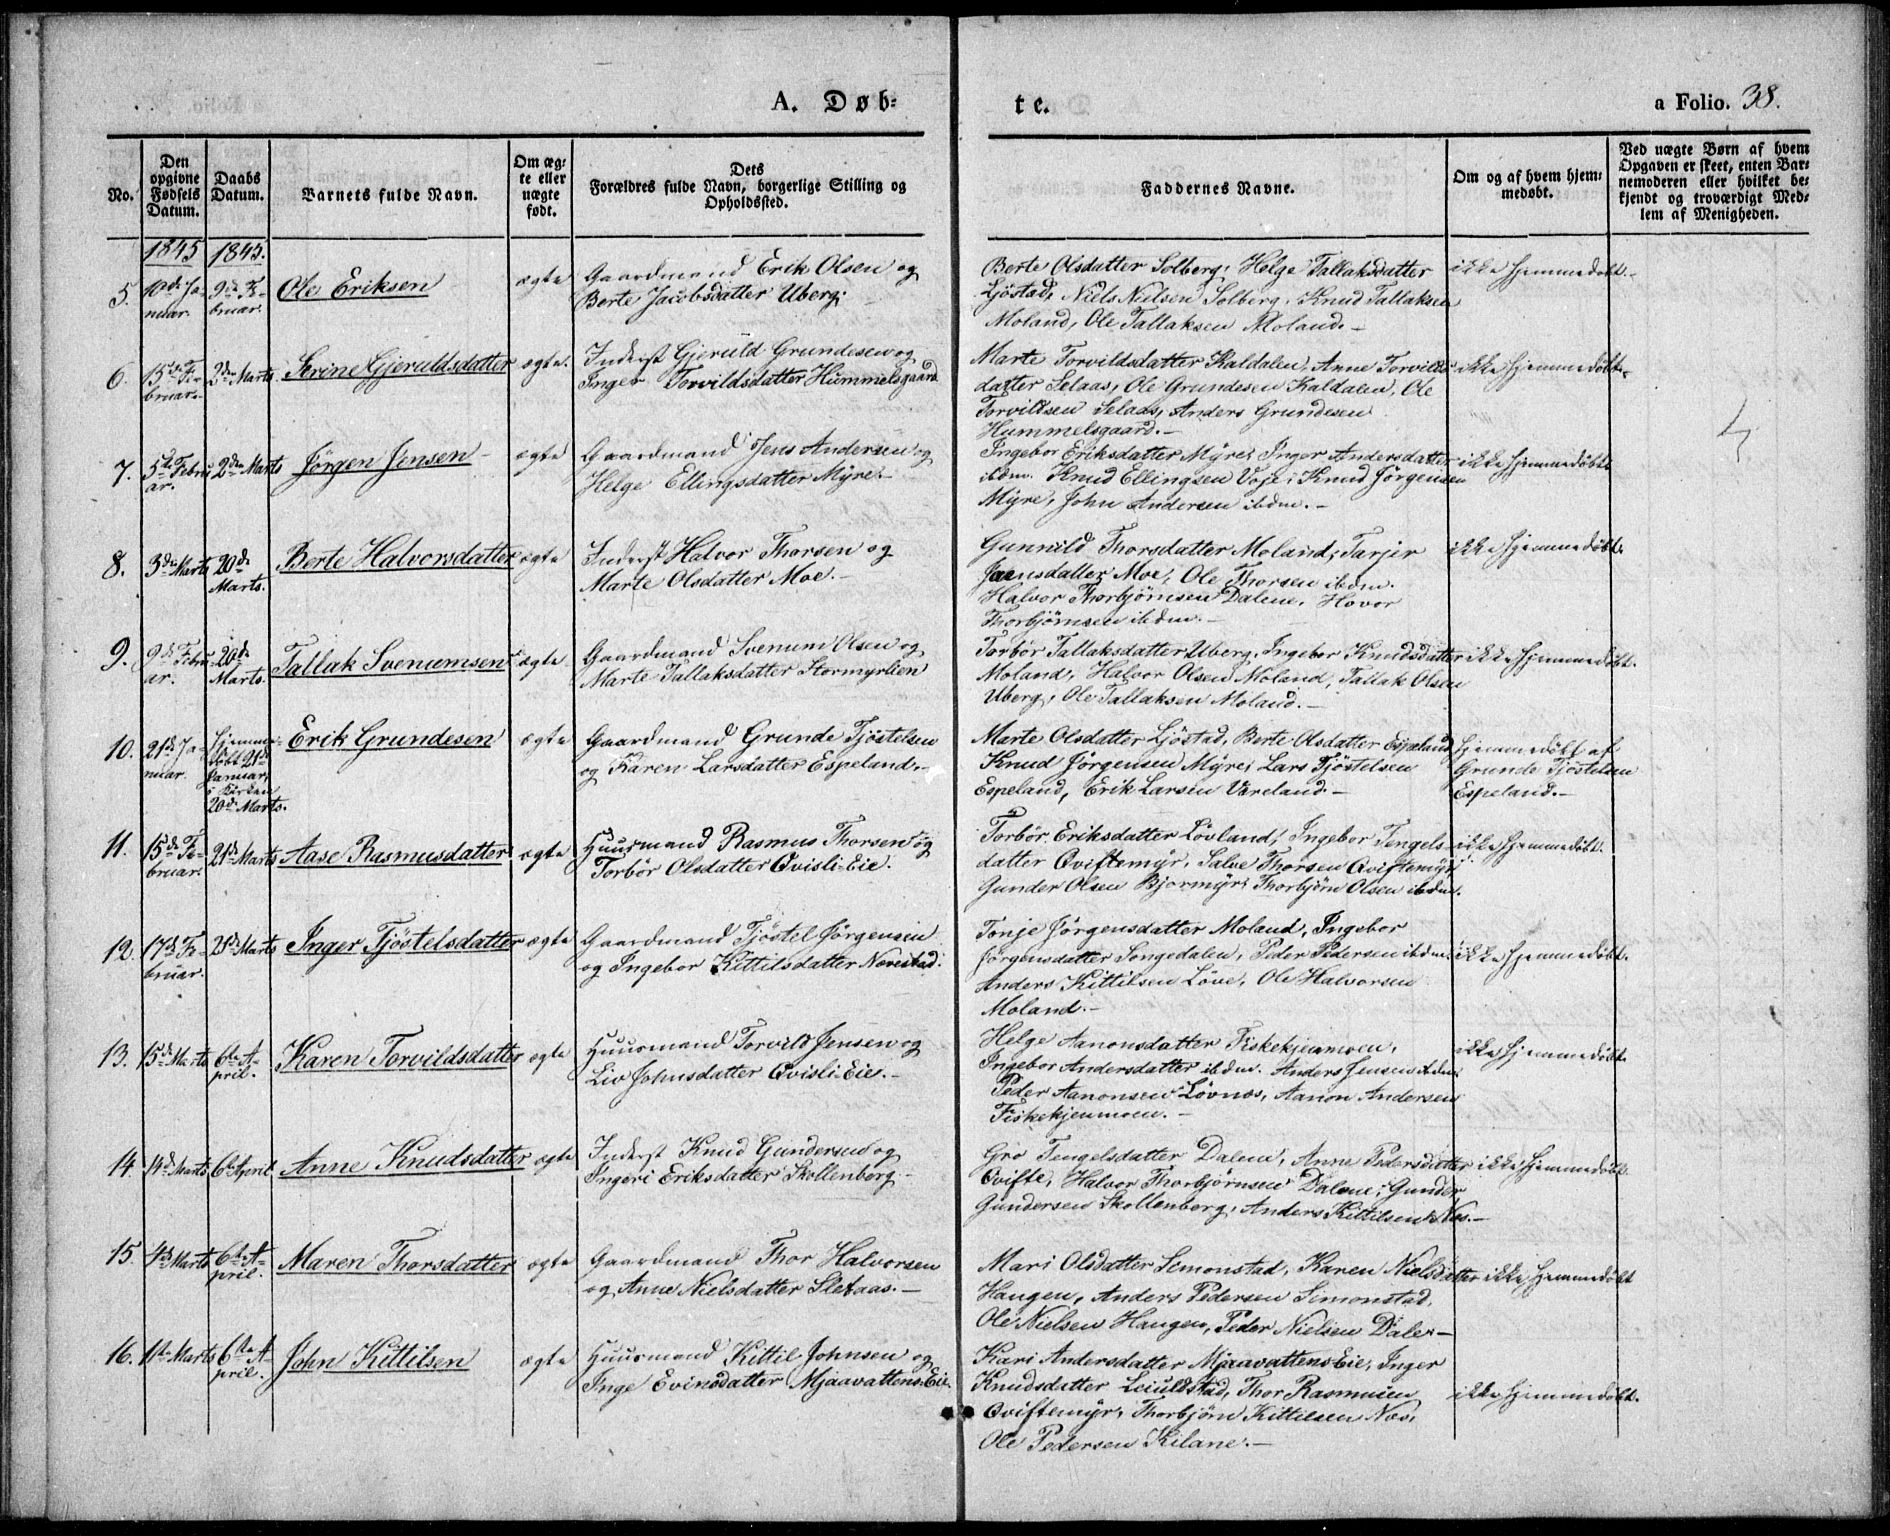 A. Døb-
te.
a Folio. 38.
No.
Den opgivne Fødsels Datum.
Daabs Datum.
Barnets fulde Navn.
Om ægte eller uægte født.
Dets Forældres fulde Navn, borgerlige Stilling og Opholdssted.
Faddernes Navne.
Om og af hvem hjemmedøbt.
Ved uægte Børn af hvem Opgaven er skeet, enten Barnemoderen eller hvilket bekjendt og troværdigt Medlem af Menigheden.
1845 1845.
5. 10de Januar. 9de Februar. Ole Eriksen ægte
Gaardmand Erik Olsen og
Berte Jacobsdatter Uberg.
Berte Olsdatter Solberg, Helge Tallaksdatter
Ljøstad, Niels Nielsen Solberg, Knud Tallaksen
Moland, Ole Tallaksen Moland.-
ikke hjemmedøbt.
6. 15de Februar. 2den Marts Serine Gjeruldsdatter ægte.
Inderst Gjeruld Grundesen og
Inger Torvildsdatter Hummelsgaard
Marte Torvildsdatter Kaldalen, Anne Torvilds-
datter Selaas, Ole Grundesen Kaldalen, Ole
Torvildsen Selaas, Anders Grundesen
Hummelsgaard.-
ikke hjemmedøbt.
7. 5te Februar. 2den Marts Jörgen Jensen ægte
Gaardmand Jens Andersen og
Helge Ellingsdatter Myre.-
Ingebor Eriksdatter Myre, Inger Andersdatter
ibdm. Knud Ellingsen Voje, Knud Jörgensen
Myre, John Andersen ibdm.-
ikke hjemmedøbt
8. 3die Marts 20de Marts. Berte Halvorsdatter ægte
Inderst Halvor Thorsen og
Marte Olsdatter Moe.-
Gunnild Thorsdatter Moland, Tarjer
Moe, Ole Thorsen ibdm.
Halvor Thorbjörnsen Dalene, Hovor
Thorbjörnsen ibdm.-
ikke hjemmedøbt.
9. 9de Februar. 20de Marts. Tallak Svenumsen ægte
Gaardmand Svenum Olsen og
Marte Tallaksdatter Stormyrlien
Torbör Tallaksdatter Uberg, Ingebor Knudsdatter
Moland, Halvor Olsen Moland, Tallak Olsen
Uberg, Ole Tallaksen Moland.-
ikke hjemmedøbt.
10. 21de Januar. Hjemmedøbt 21de Januar, i Kirken 20de Marts. Erik Grundesen ægte
Gaardmand Grunde Tjöstelsen
og Karen Larsdatter Espeland.-
Marte Olsdatter Ljöstad, Berte Olsdatter Espeland
Knud Jörgensen Myre, Lars Tjöstelsen
Espeland, Erik Larsen Vareland.-
hjemmedøbt af
Grunde Tjöstelsen
Espeland.-
11. 15de Februar. 21de Marts Aase Rasmusdatter ægte
Huusmand Rasmus Thorsen og
Torbör Olsdatter Qvisli-Eie.
Torbör Eriksdatter Lövland, Ingebor Tengels-
datter Qviftemyr, Salve Thorsen Qviftemyr,
Gunder Olsen Bjormyr, Thorbjörn Olsen ibdm.
ikke hjemmedøbt.
12. 17de Februar. 21de Marts Inger Tjöstelsdatter ægte
Gaardmand Tjöstel Jörgensen
og Ingebor Kittilsdatter Norestad.
Tonje Jörgensdatter Moland, Ingebor
Jörgensdatter Songedalen, Peder Pedersen ibdm.
Anders Kittilsen Löve, Ole Halvorsen
Moland.-
ikke hjemmedøbt.
13. 15de Marts 6te April. Karen Torvildsdatter ægte
Huusmand Torvild Jensen og
Liv Johnsdatter Qvisli-Eie.-
Helge Aanonsdatter Fiskekjenmoen,
Ingebor Andersdatter ibdm. Anders Jensen ibdm.
Peder Aanonsen Lövnæs, Aanon Andersen
Fiskekjenmoen.-
ikke hjemmedøbt.
14. 14de Marts 6te April. Anne Knudsdatter ægte
Inderst Knud Gundersen og
Ingeri Eriksdatter Skollenborg.-
Gro Tengelsdatter Dalene, Anne Pedersdatter
Qvifte, Halvor Thorbjörnsen Dalene, Gunder
Gundersen Skollenborg, Anders Kittilsen Næs.-
ikke hjemmedøbt.
15. 4de Marts 6te April. Maren Thorsdatter ægte
Gaardmand Thor Halvorsen
og Anne Nielsdatter Sletaas.-
Mari Olsdatter Simonstad, Karen Nielsdatter
Haugen, Anders Pedersen Simonstad,
Ole Nielsen Haugen, Peder Nielsen Dale.-
ikke hjemmedøbt
16. 11te Marts 6te April. John Kittilsen ægte
Huusmand Kittil Johnsen og
Inge Evensdatter Mjaavattens-Eie.
Kari Andersdatter Mjaavattens-Eie, Inger
Knudsdatter Leiulstad, Thor Rasmusen
Qviftemyr, Thorbjörn Kittilsen Næs,
Ole Pedersen Kilane.-
ikke hjemmedøbt.